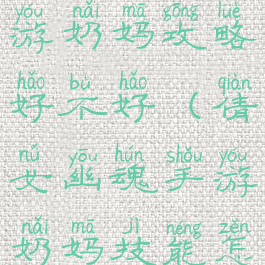 yóu nǎi mā gōng lüè
游奶妈攻略
hǎo bù hǎo qiàn
好不好（倩
nǚ yōu hún shǒu yóu
女幽魂手游
nǎi mā jì néng zěn
奶妈技能怎